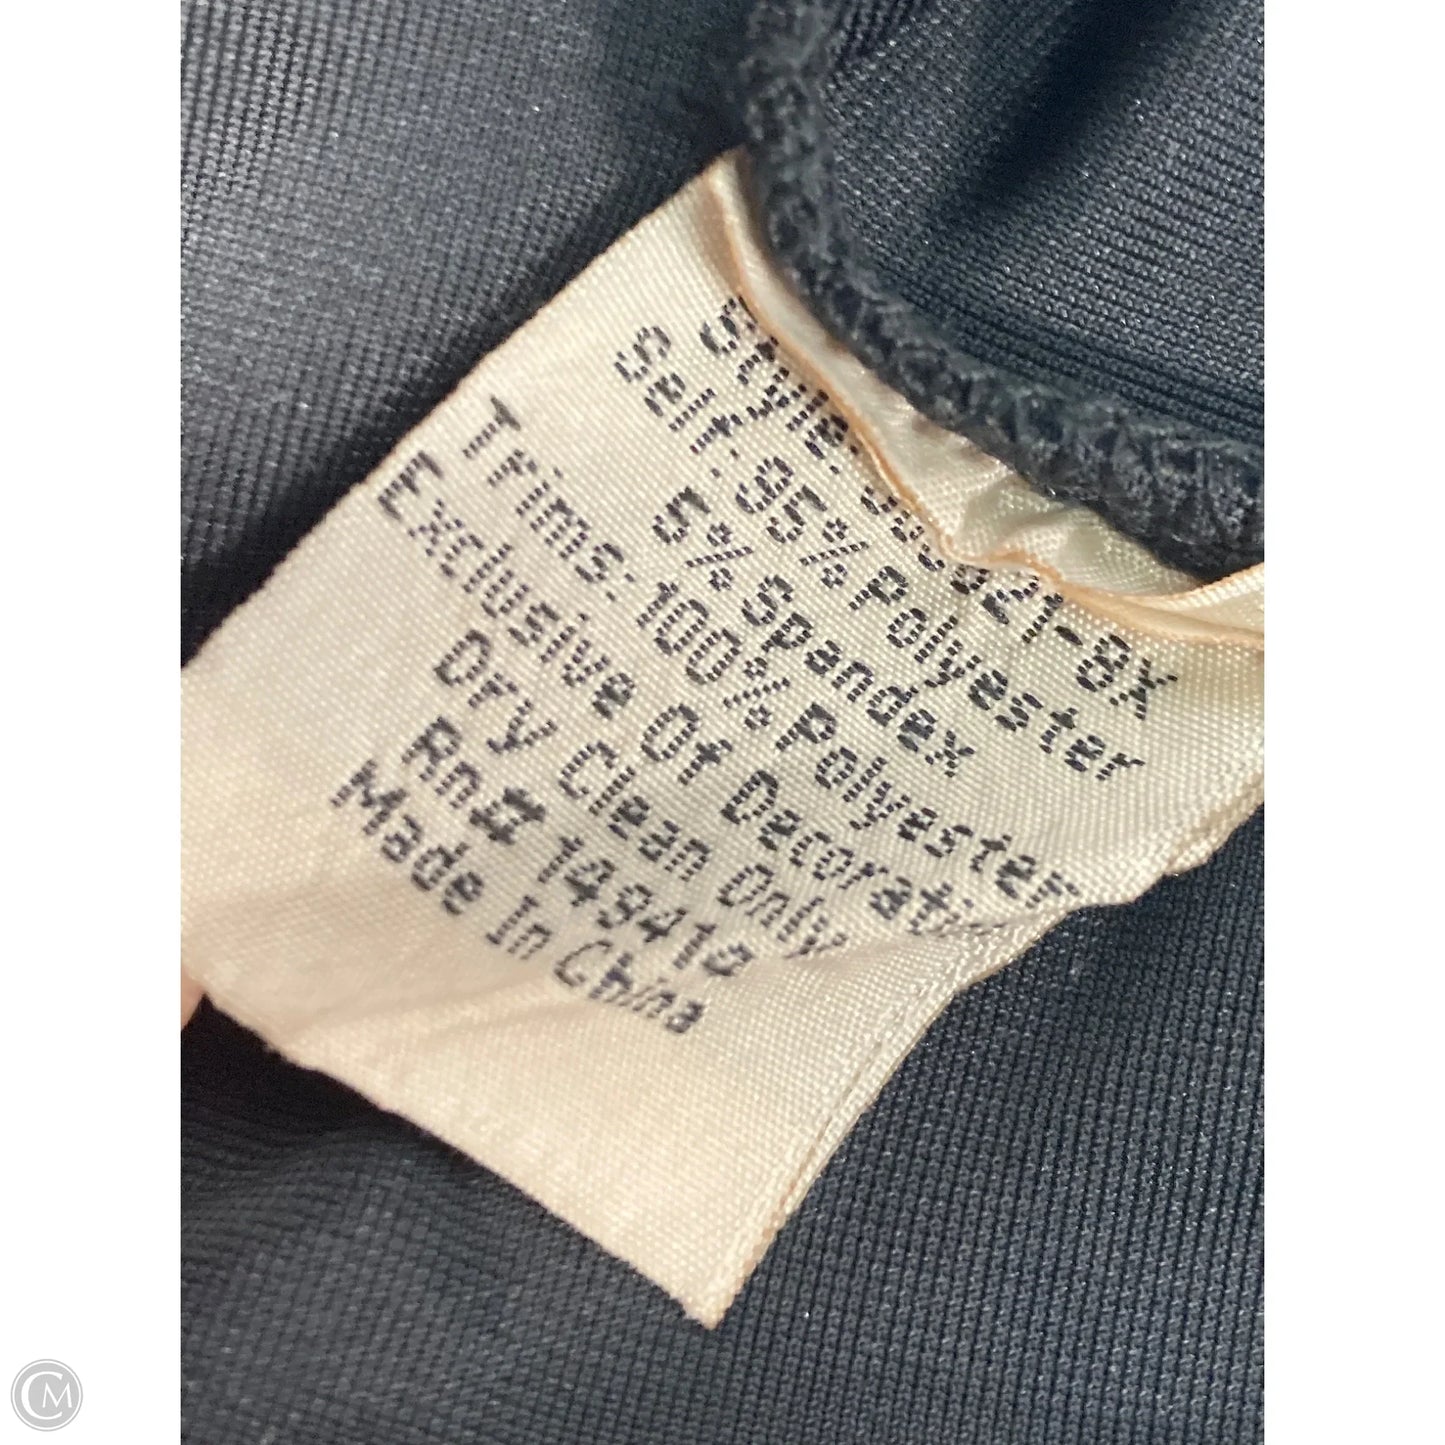 Style:
Self: 95% Polyester
5% Spandex
Trims: 100% Polyester
Exclusive Of Decoration
Dry Clean Only
Rn# 149410
Made In China
CM